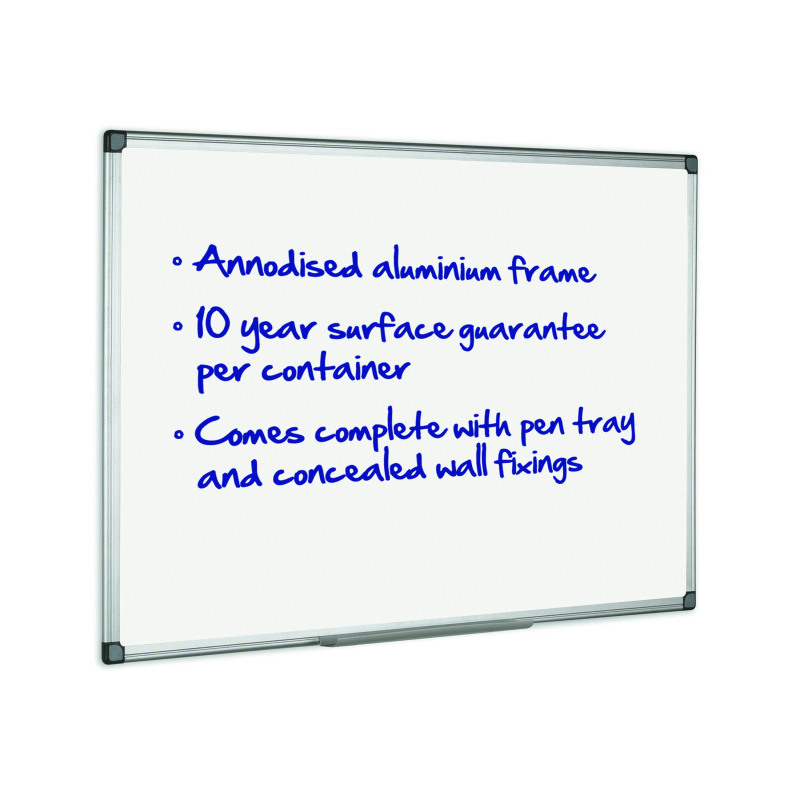 ° Annodised aluminium frame
° 10 year surface guarantee
per container
° Comes complete with pen tray
and concealed wall fixings